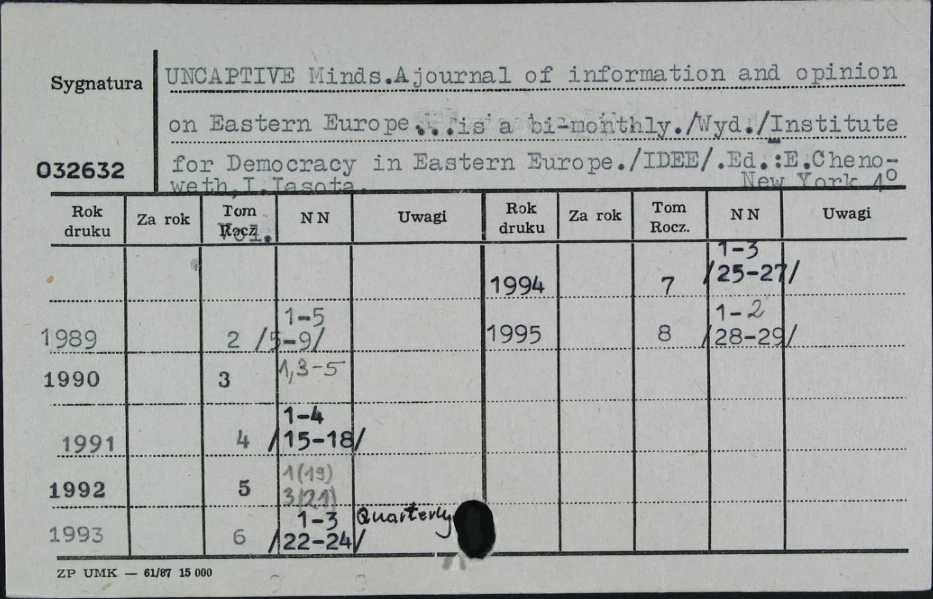 Sygnatura
UNCAPTIVE Minds.A journal of information and opinion
on Eastern Europe...is a bi-monthly./Wyd./Institute
032632
for Democracy in Eastern Europe./IDEE/.Ed.:E.Cheno-
weth,I.Lasota. New York 4°
Rok druku Za rok Tom Rocz. Vol. NN Uwagi Rok druku Za rok Tom Rocz. NN Uwagi
1994 7 1-3 /25-27/
1989 2 1-5 /5-9/
1995 8 1-2 /28-29/
1990 3 1,3-5
1991 4 1-4 /15-18/
1992 5 1(19) 3(21)
1993 6 1-3 /22-24/ Quarterly
ZP UMK — 61/87 15 000